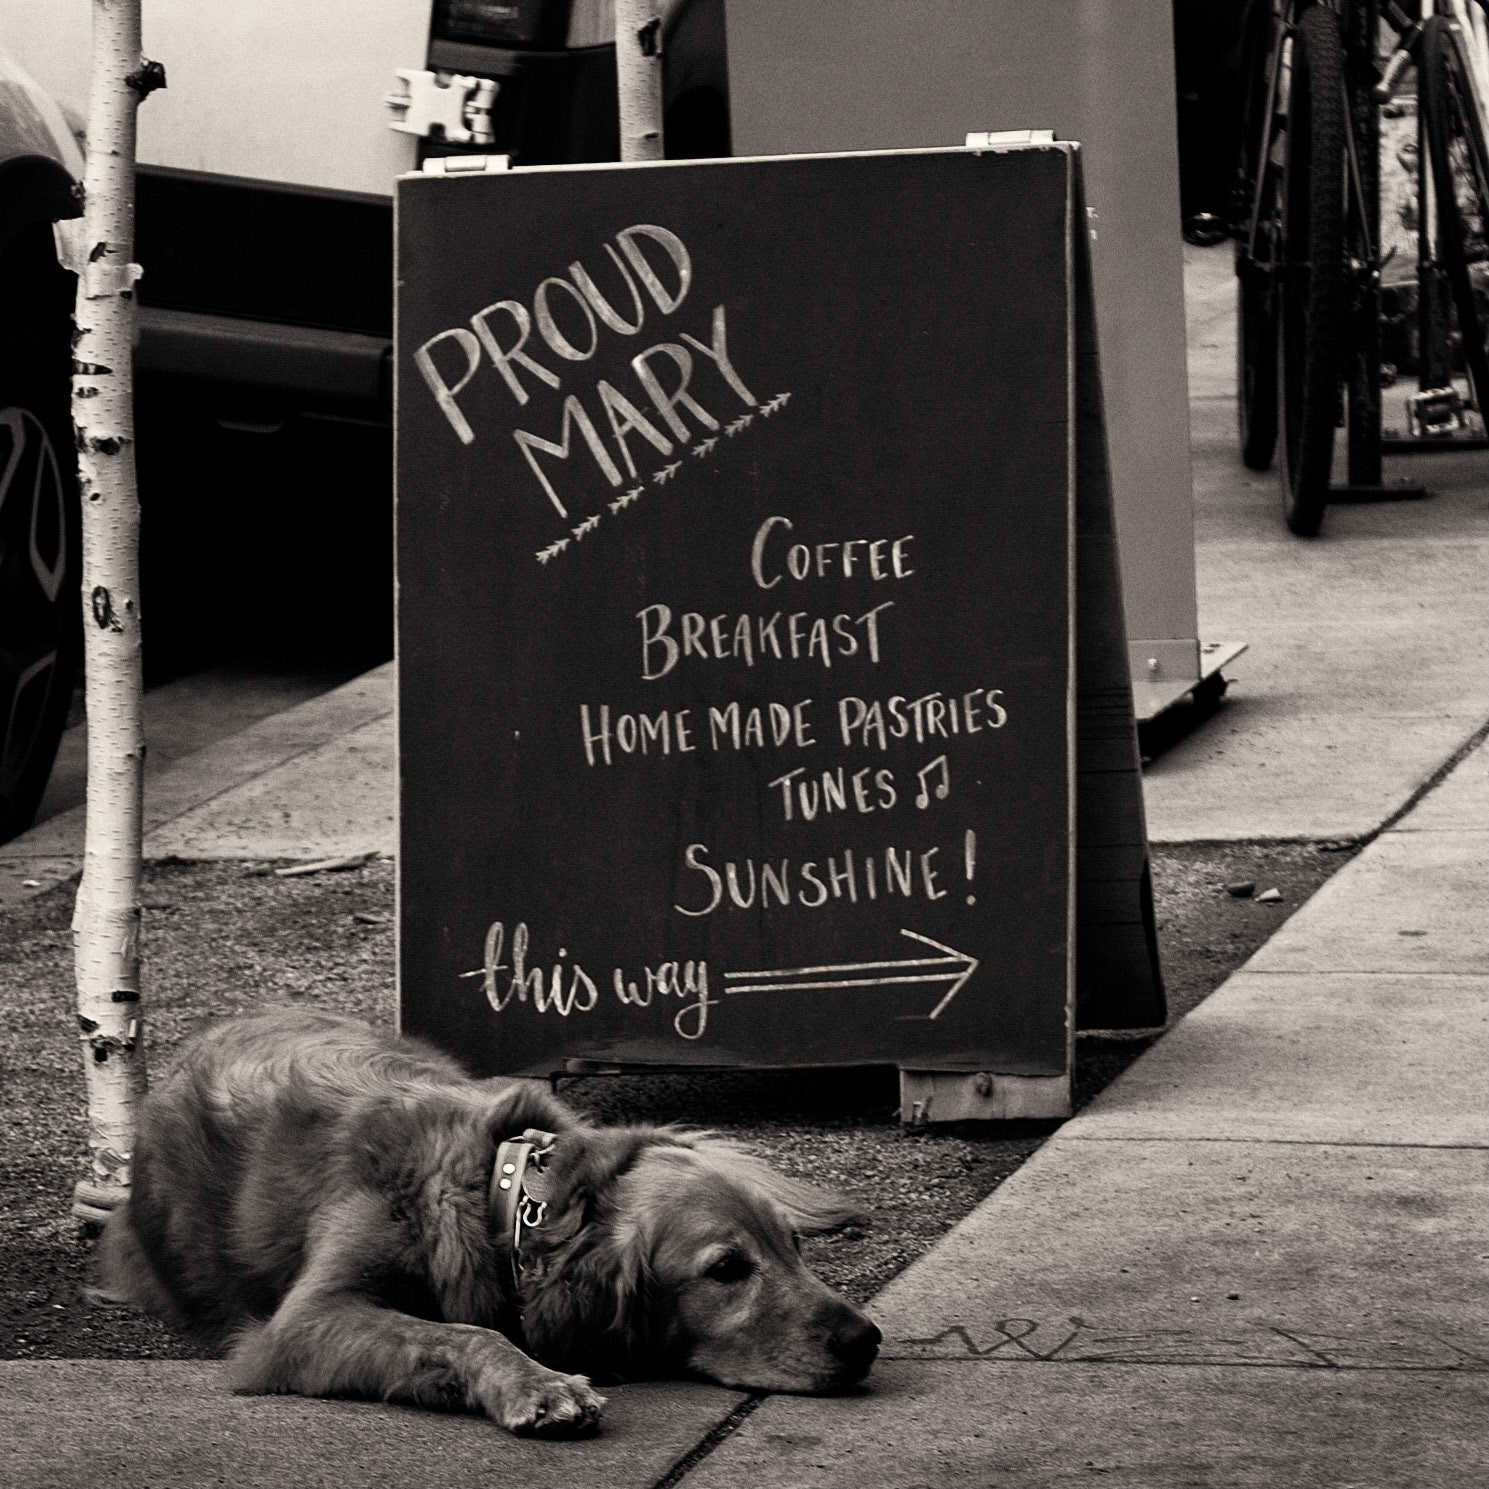 PROUD
MARY
COFFEE
BREAKFAST
HOME MADE PASTRIES
TUNES ♫
SUNSHINE!
this way